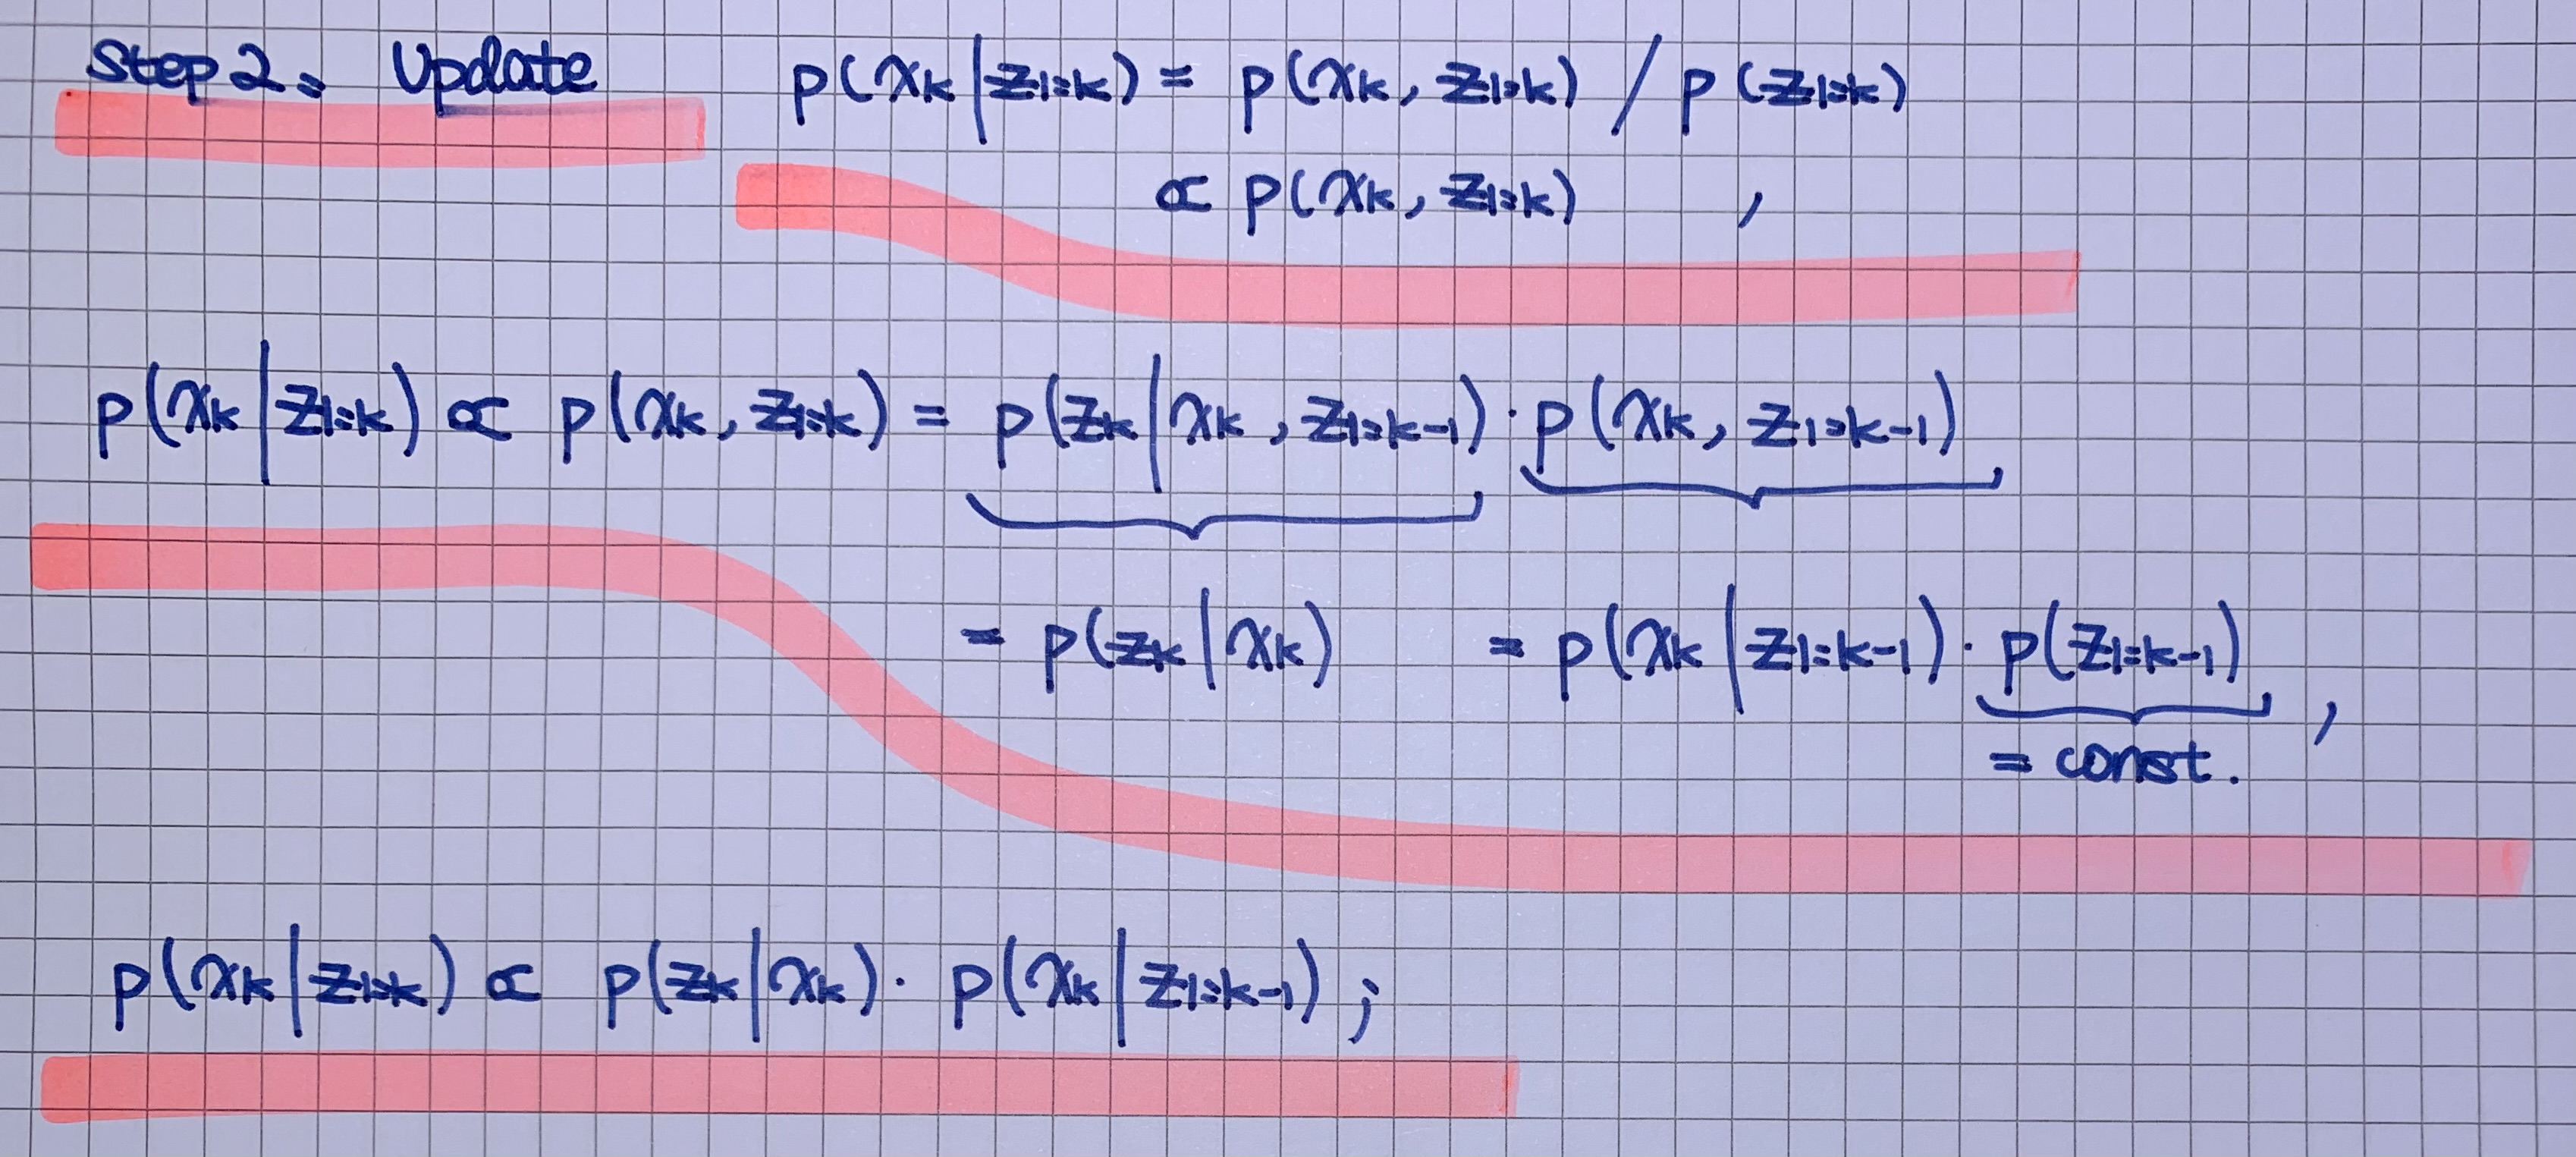 Step 2: Update p(xₖ|z₁:ₖ) = p(xₖ, z₁:ₖ) / p(z₁:ₖ)
∝ p(xₖ, z₁:ₖ) ,
p(xₖ|z₁:ₖ) ∝ p(xₖ, z₁:ₖ) = p(zₖ|xₖ, z₁:ₖ₋₁) · p(xₖ, z₁:ₖ₋₁)
= p(zₖ|xₖ) = p(xₖ|z₁:ₖ₋₁) · p(z₁:ₖ₋₁) ,
= const.
p(xₖ|z₁:ₖ) ∝ p(zₖ|xₖ) · p(xₖ|z₁:ₖ₋₁) ;